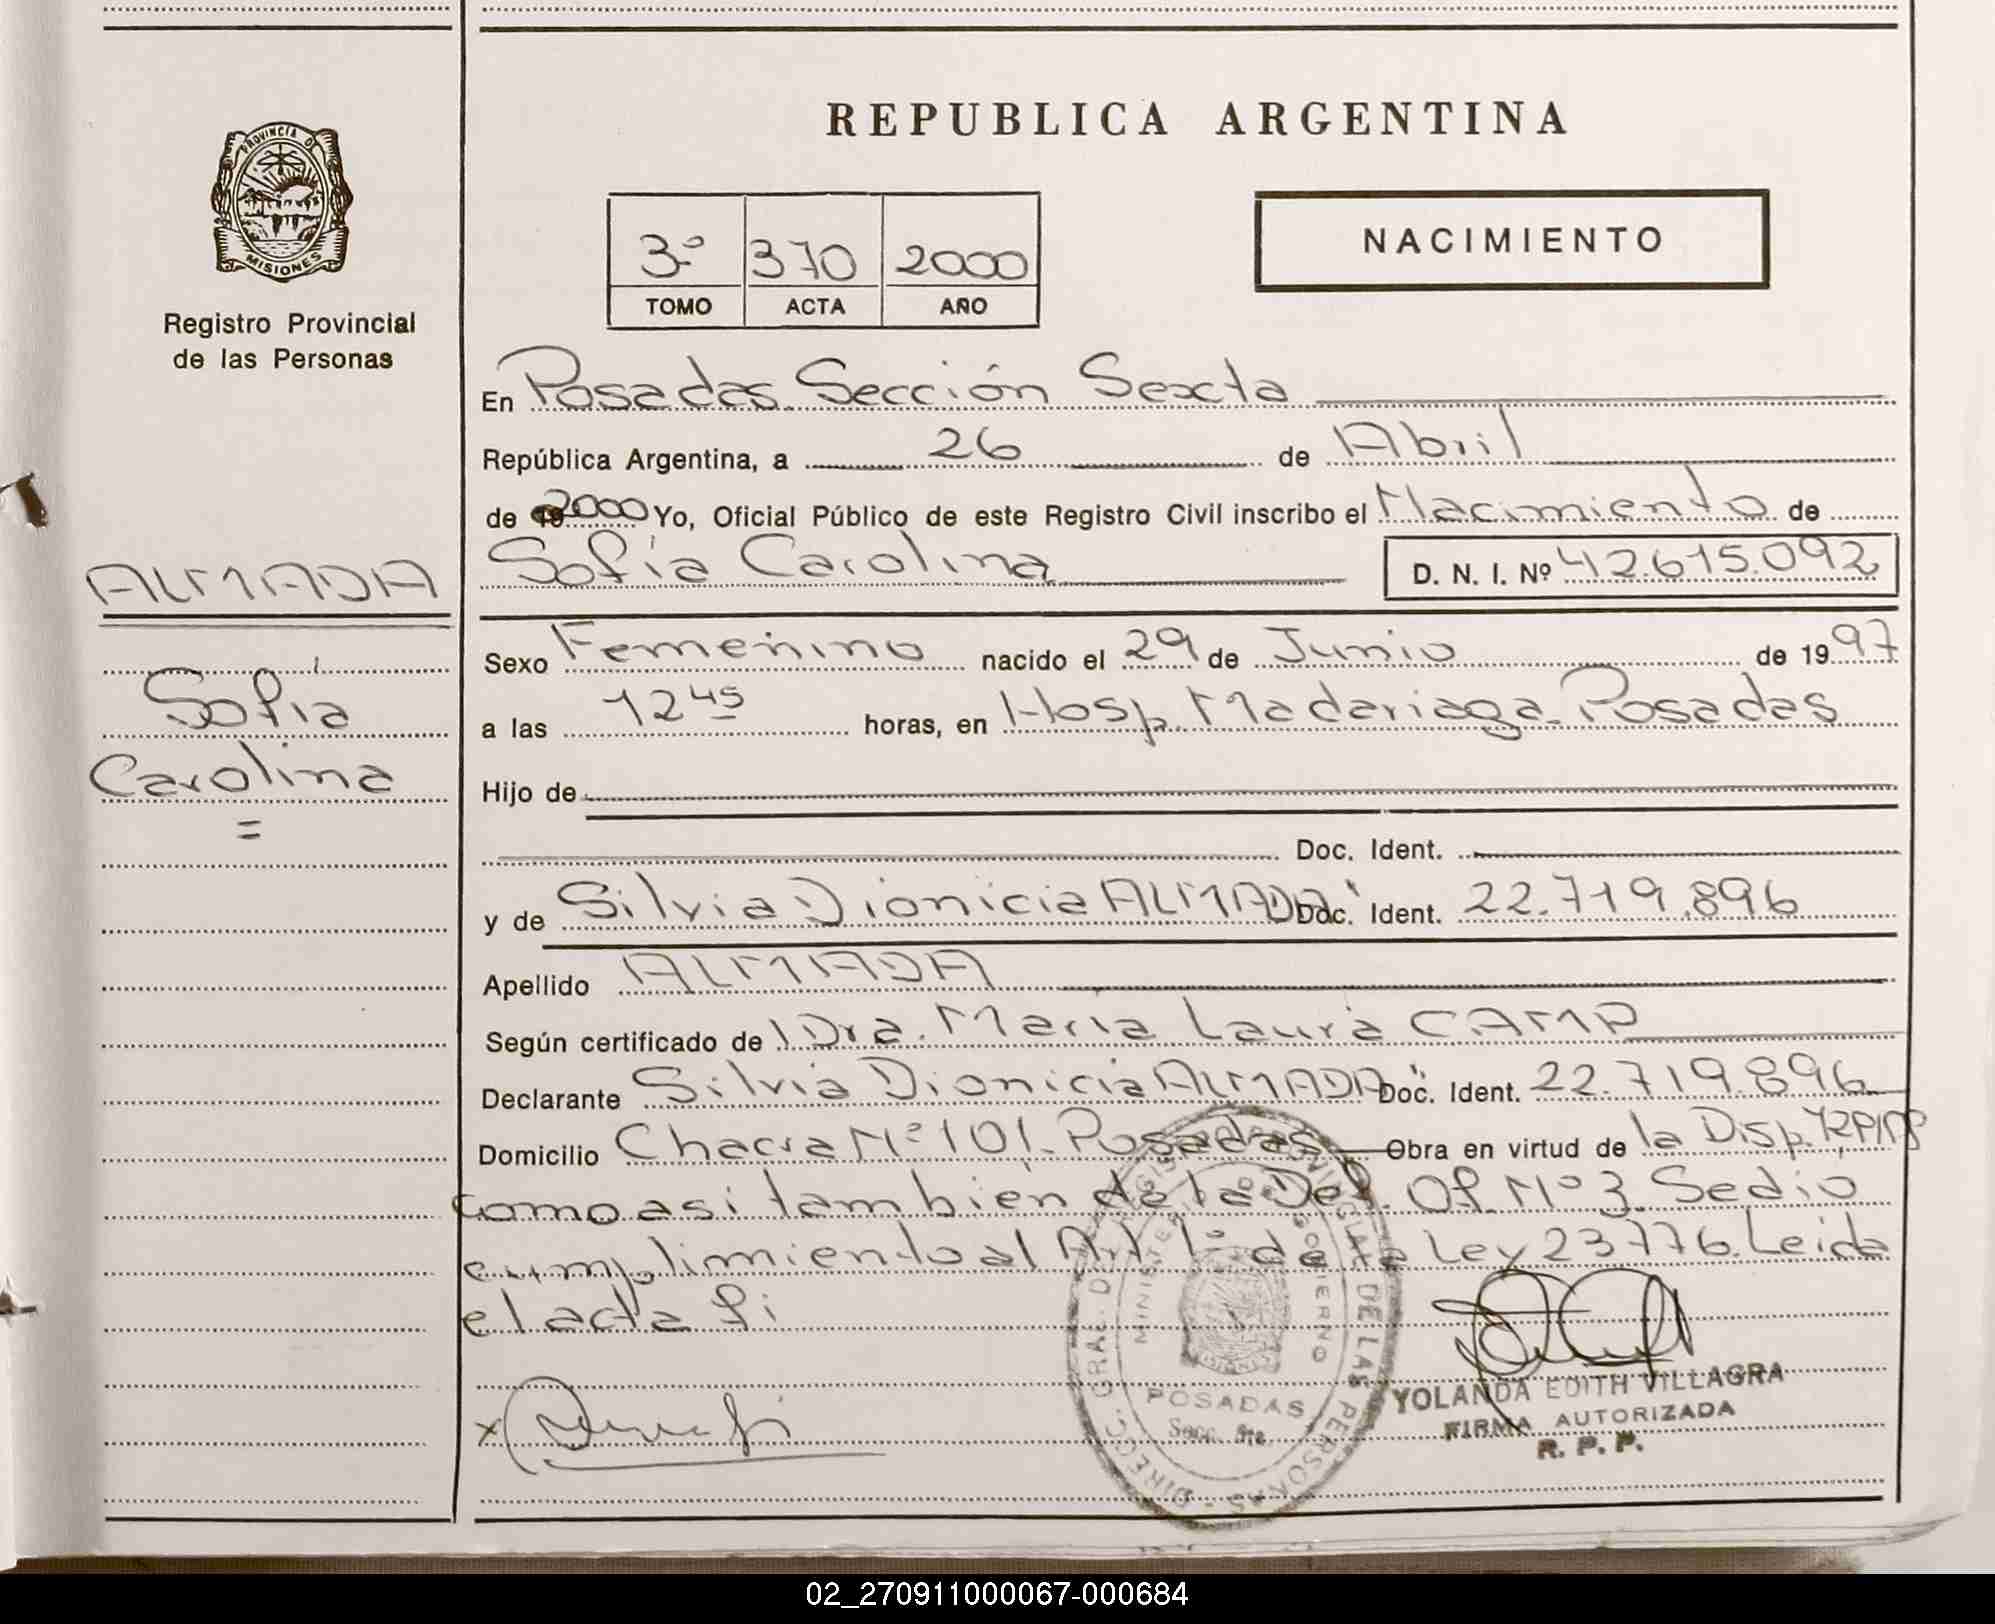 REPUBLICA ARGENTINA
PROVINCIA DE
MISIONES
Registro Provincial
de las Personas
3º 370 2000
TOMO ACTA AÑO
NACIMIENTO
En Posadas Sección Sexta
República Argentina, a 26 de Abril
de 2000 Yo, Oficial Público de este Registro Civil inscribo el Nacimiento de
Sofía Carolina D. N. I. Nº 42.615.092
ALMADA
Sofía
Carolina
=
Sexo Femenino nacido el 29 de Junio de 1997
a las 12 45 horas, en Hosp. Madariaga Posadas
Hijo de
Doc. Ident.
y de Silvia Dionicia ALMADA Doc. Ident. 22.719.896
Apellido ALMADA
Según certificado de Dra. María Laura CAMP
Declarante Silvia Dionicia ALMADA Doc. Ident. 22.719.896
Domicilio Chacra Nº 101 Posadas Obra en virtud de la Disp.
como asi tambien de la Del. Of. Nº 3. Sedio
cumplimiento al Art. 1º de la Ley 23776. Leida
el acta fi
DIRECC. GRAL. DE REGISTRO PROVINCIAL DE LAS PERSONAS
MINISTERIO DE GOBIERNO
POSADAS
Secc. 6ta.
x
YOLANDA EDITH VILLAGRA
FIRMA AUTORIZADA
R. P. P.
02_270911000067-000684